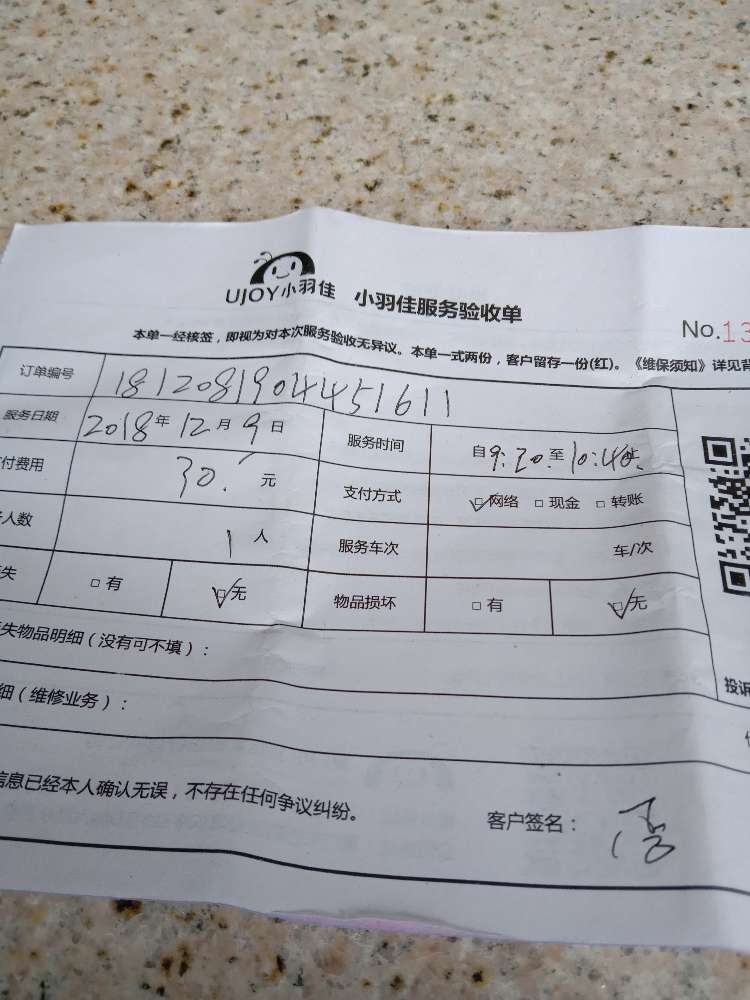 UJOY小羽佳 小羽佳服务验收单
No.13
本单一经核签，即视为对本次服务验收无异议。本单一式两份，客户留存一份(红)。《维保须知》详见背
订单编号 1812081904451611
服务日期 2018年12月9日 服务时间 自9:20至10:40
付费用 30. 元 支付方式 网络 现金 转账
人数 1人 服务车次 车/次
失 有 无 物品损坏 有 无
失物品明细（没有可不填）：
投诉
细（维修业务）：
信息已经本人确认无误，不存在任何争议纠纷。
客户签名：